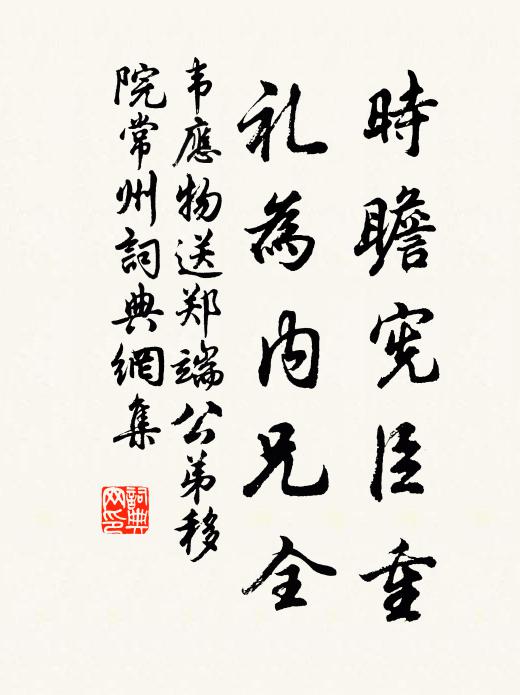 時瞻宪臣重
礼為内兄全
韦應物送郑端公弟移
院常州詞典網集
詞典网印